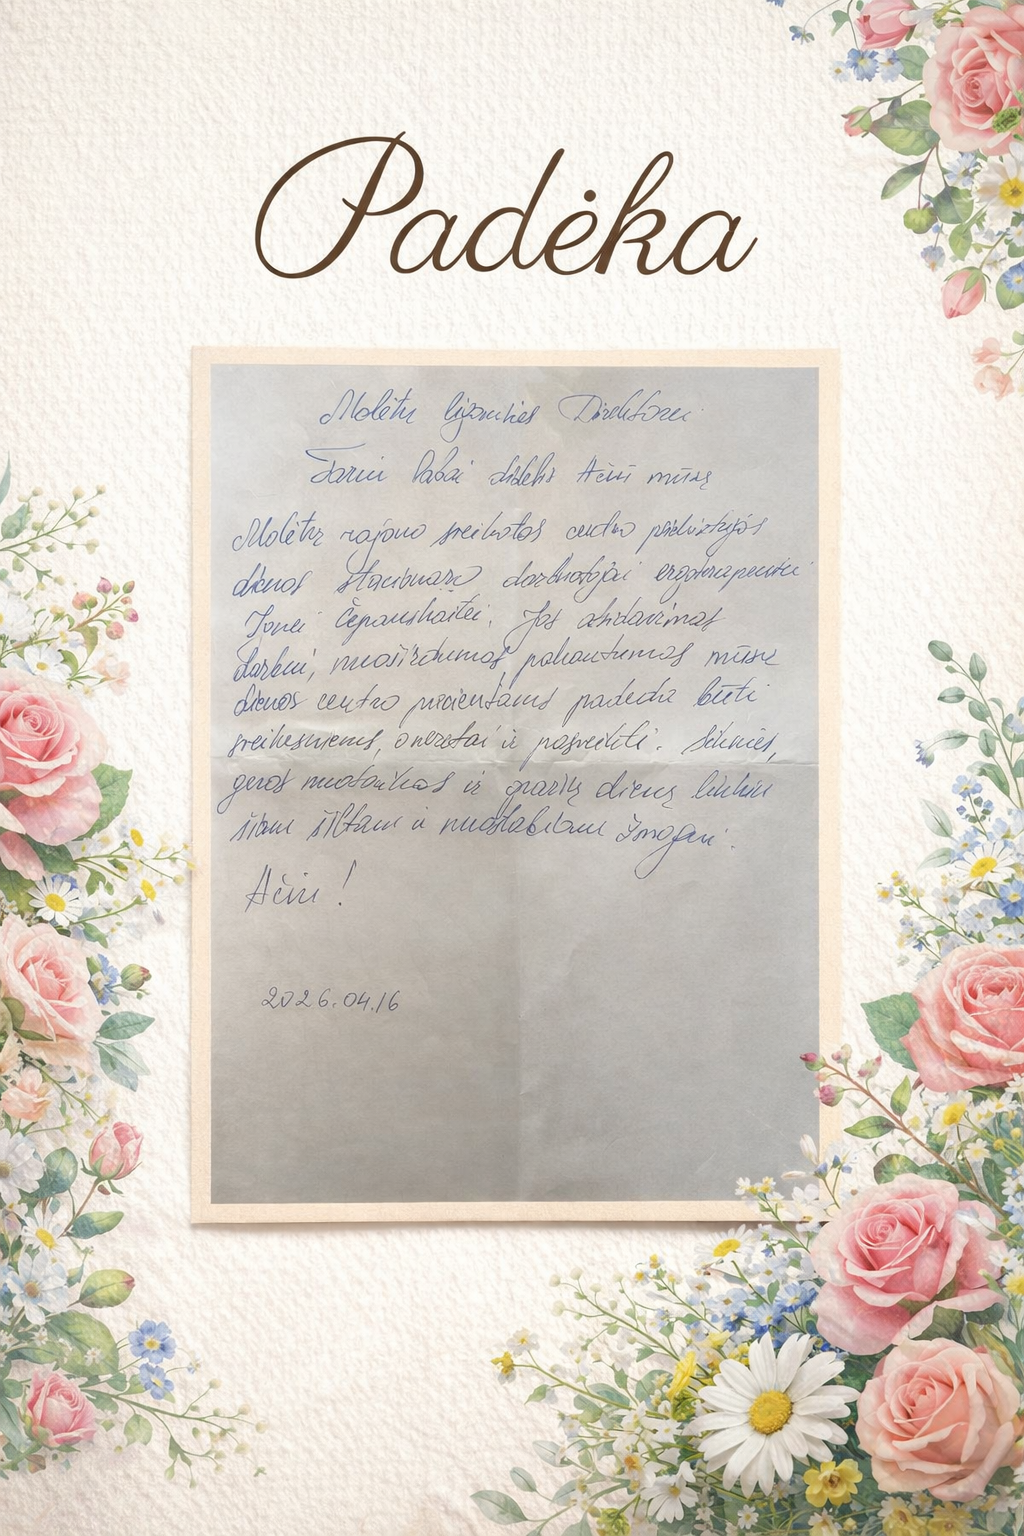 Padėka
Molėtų ligoninės Direktorei
Tariu labai didelį Ačiū mūsų
Molėtų rajono sveikatos centro psichiatrijos
dienos stacionaro darbuotojai ergoterapeutei
Jonei Čepauskaitei. Jos atsidavimas
darbui, nuoširdumas pakantumas mūsų
dienos centro pacientams padeda būti
sveikesniems, ir pasveikti. Sėkmės,
geros nuotaikos ir gražių dienų linkiu
šiam šiltam ir nuostabiam žmogui.
Ačiū!
2026.04.16